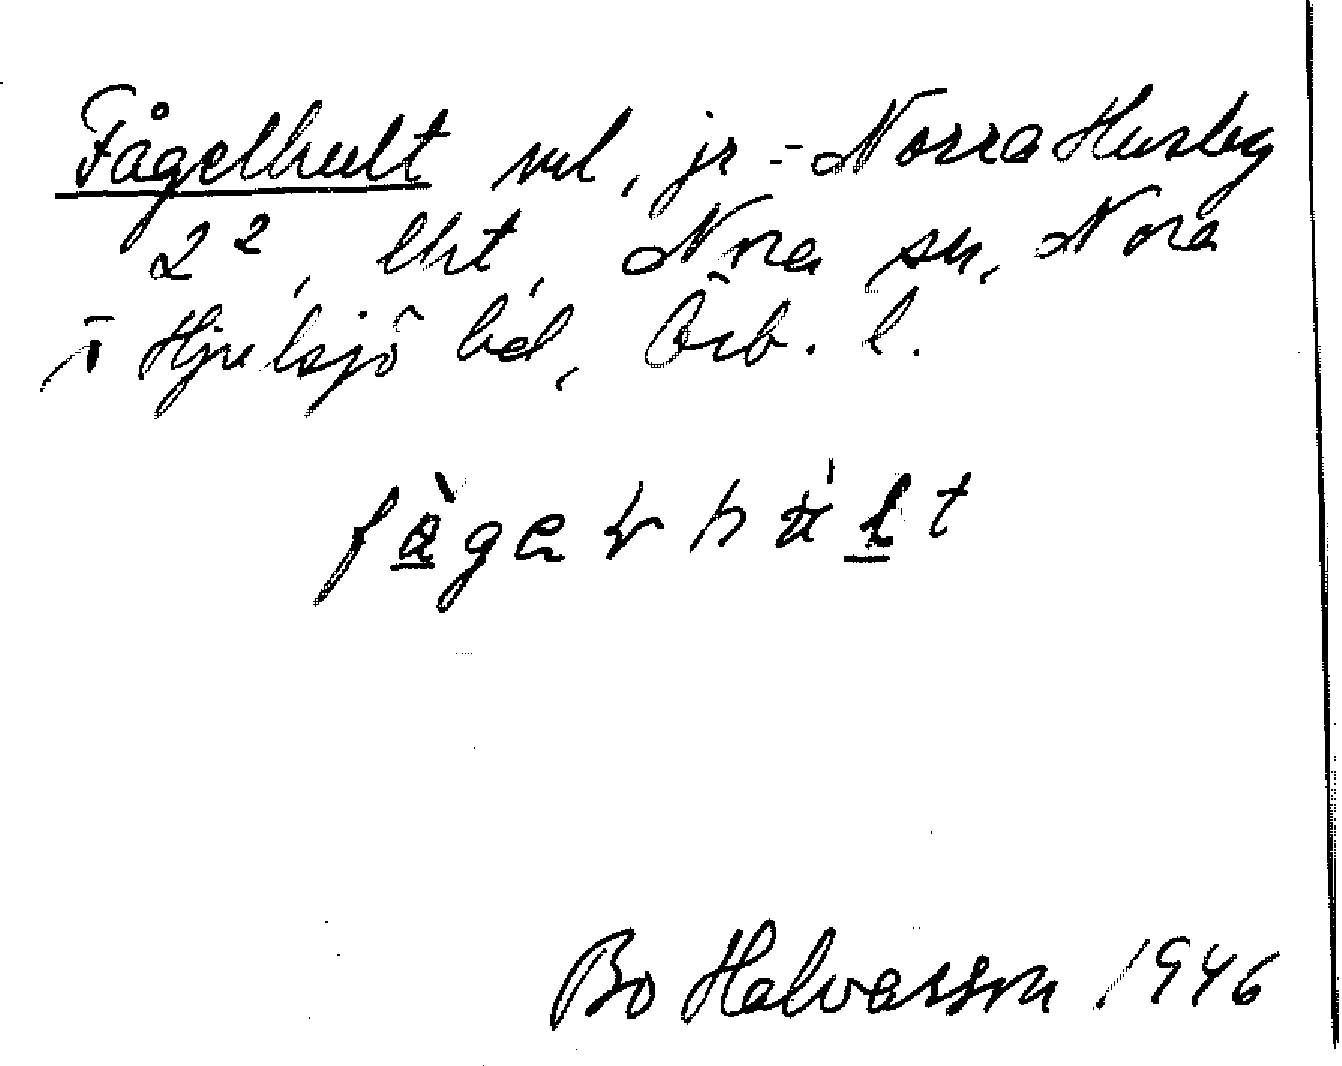 Fågelhult nul, jr = Norra Husby
2², lht, Nora sn, Nora
o Hjulsjö bd, Örb. l.
Bo Halvarsson 1946